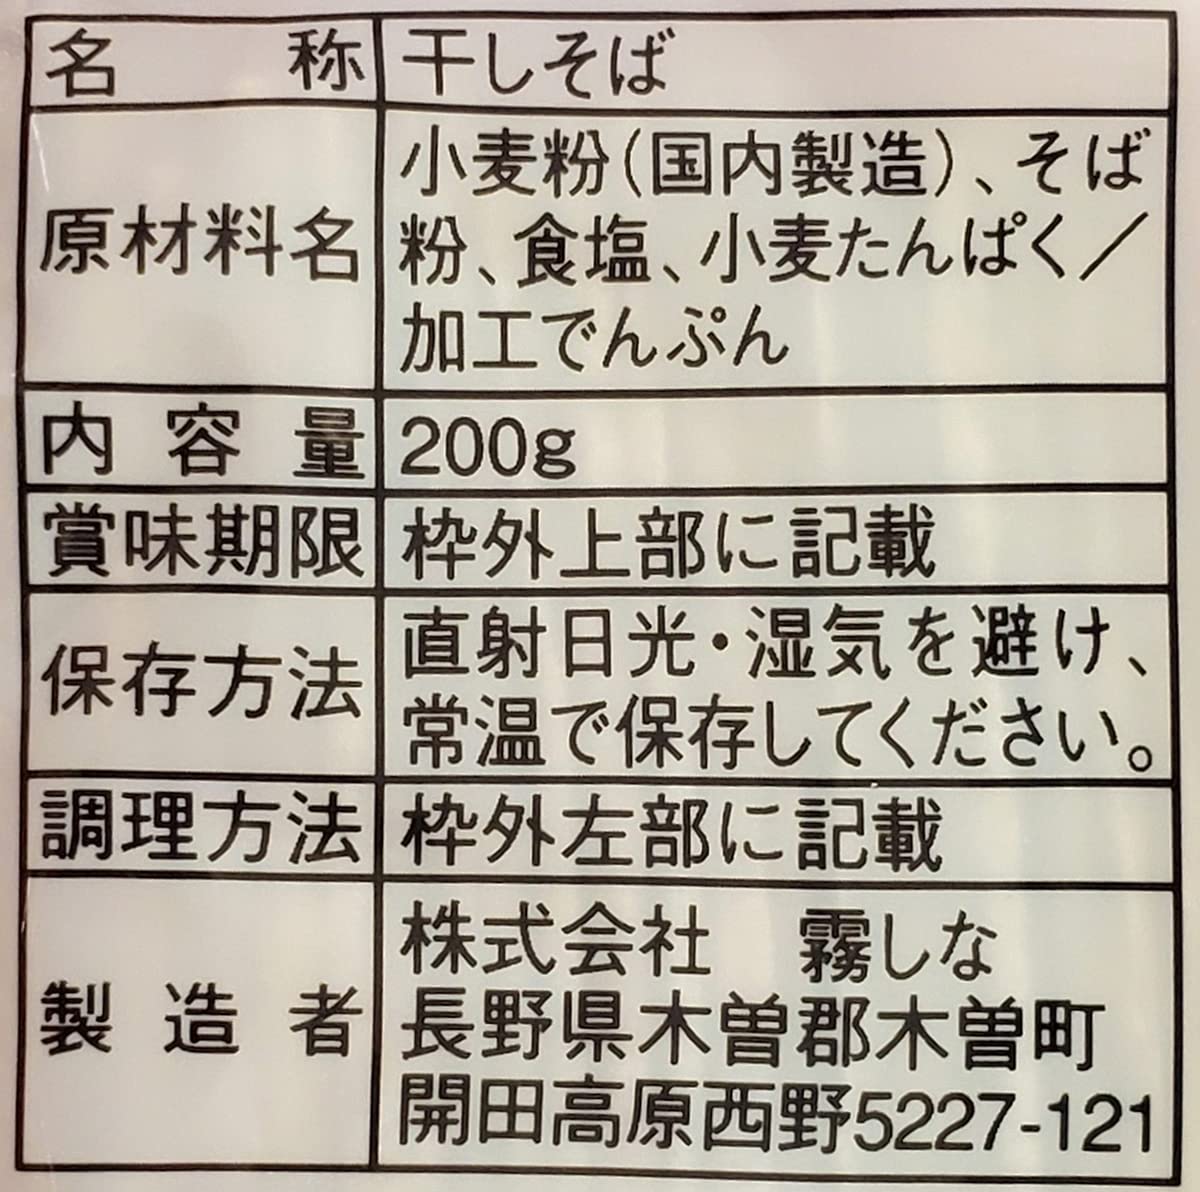 名称 干しそば
原材料名 小麦粉(国内製造)、そば
粉、食塩、小麦たんぱく/
加工でんぷん
内容量 200g
賞味期限 枠外上部に記載
保存方法 直射日光・湿気を避け、
常温で保存してください。
調理方法 枠外左部に記載
製造者 株式会社 霧しな
長野県木曽郡木曽町
開田高原西野5227-121